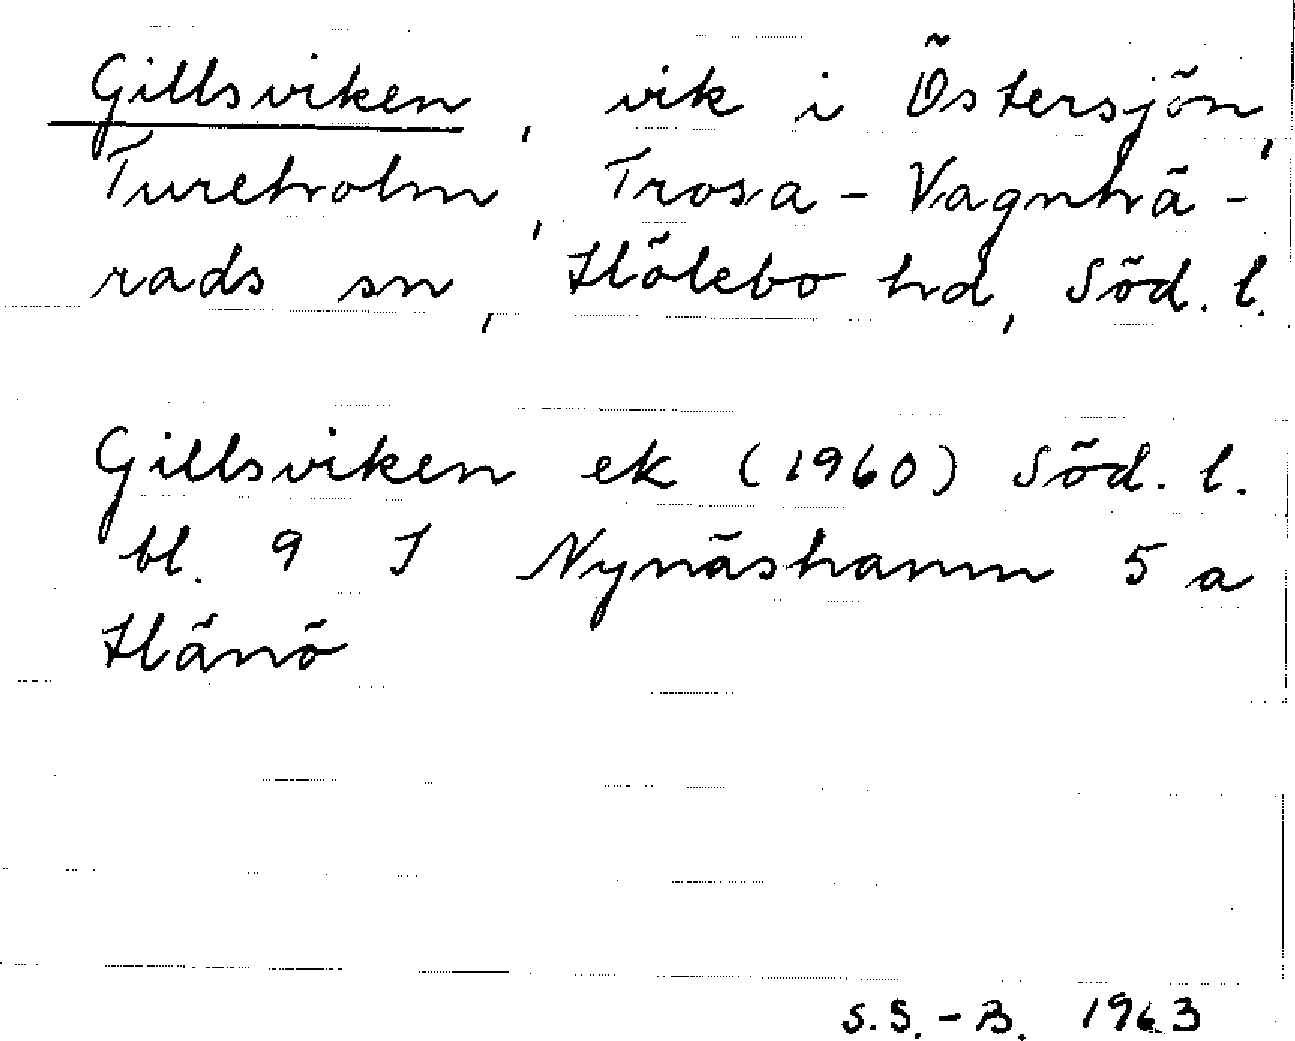 Gillsviken, vik i Östersjön,
Tureholm, Trosa-Vagnhä-
rads sn, Hölebo hd, Söd. l.
Gillsviken ek (1960) Söd. l.
bl. 9 I Nynäshamn 5 a
Hänö
S.S.-B. 1963